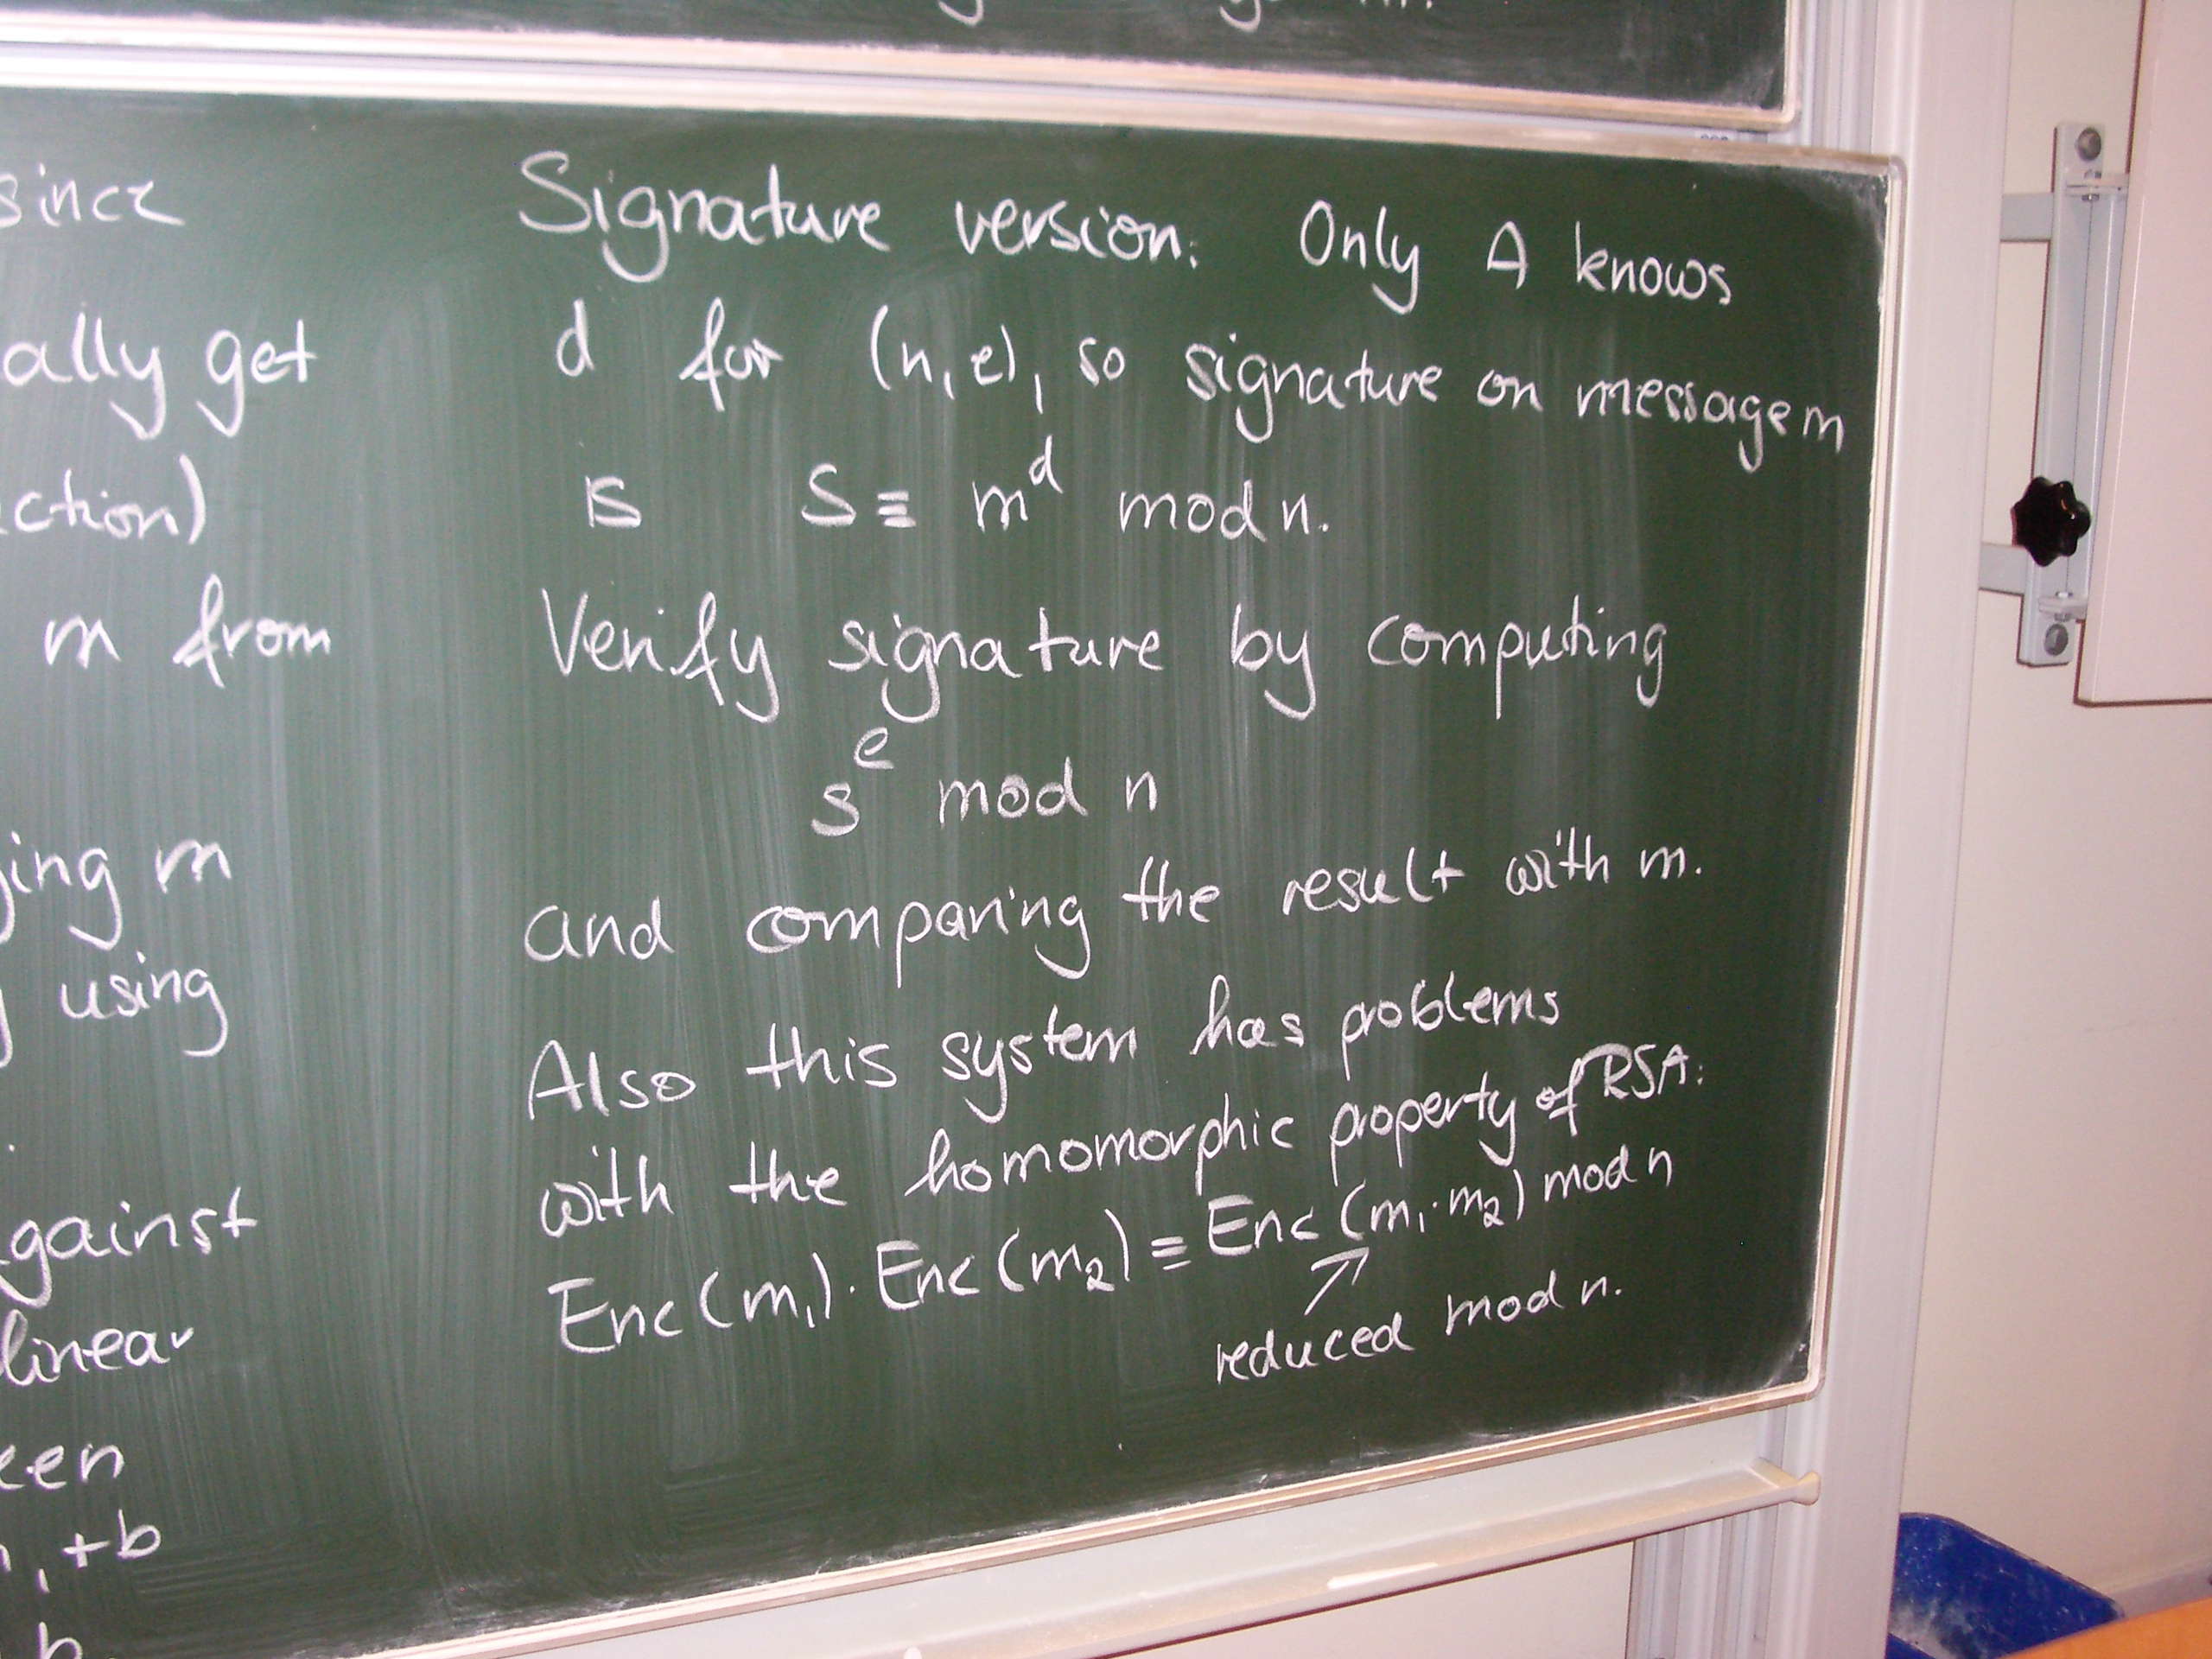 since
ally get
ction)
m from
ing m
using
gainst
linear
een
, +b
Signature version: Only A knows
d for (n,e), so signature on message m
is S ≡ m^d mod n.
Verify signature by computing
s^e mod n
and comparing the result with m.
Also this system has problems
with the homomorphic property of RSA:
Enc(m₁)·Enc(m₂) ≡ Enc(m₁·m₂) mod n
reduced mod n.